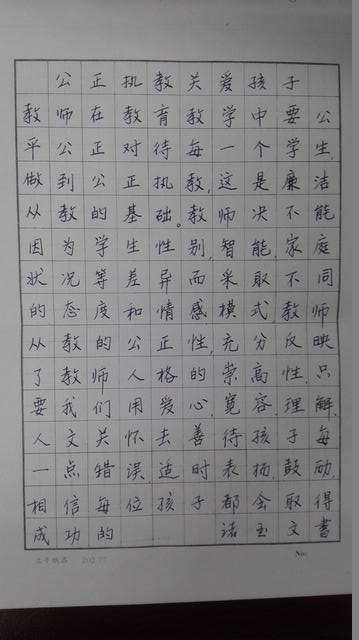 公正执教关爱孩子
教师在教育教学中要公
平公正对待每一个学生,
做到公正执教,这是廉洁
从教的基础。教师决不能
因为学生性别,智能,家庭
状况等差异而采取不同
的态度和情感模式,教师
从教的公正性,充分反映
了教师人格的崇高性,只
要我们用爱心,宽容,理解,
人文关怀去善待孩子每
一点错误适时表扬,鼓励,
相信每位孩子都会取得
成功的 诸玉文書
No: